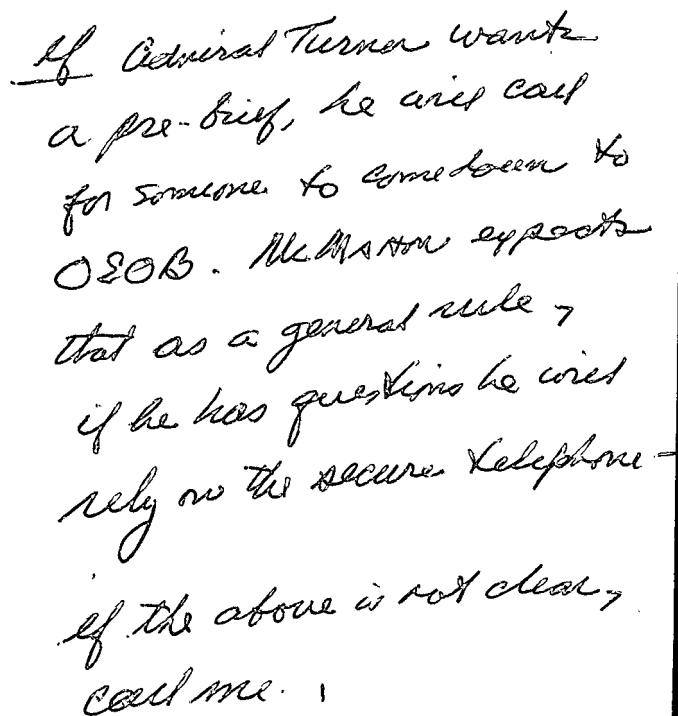 If Admiral Turner wants
a pre-brief, he will call
for someone to come down to
OEOB. McMahon expects
that as a general rule,
if he has questions he will
rely on the secure telephone-
if the above is not clear,
call me.